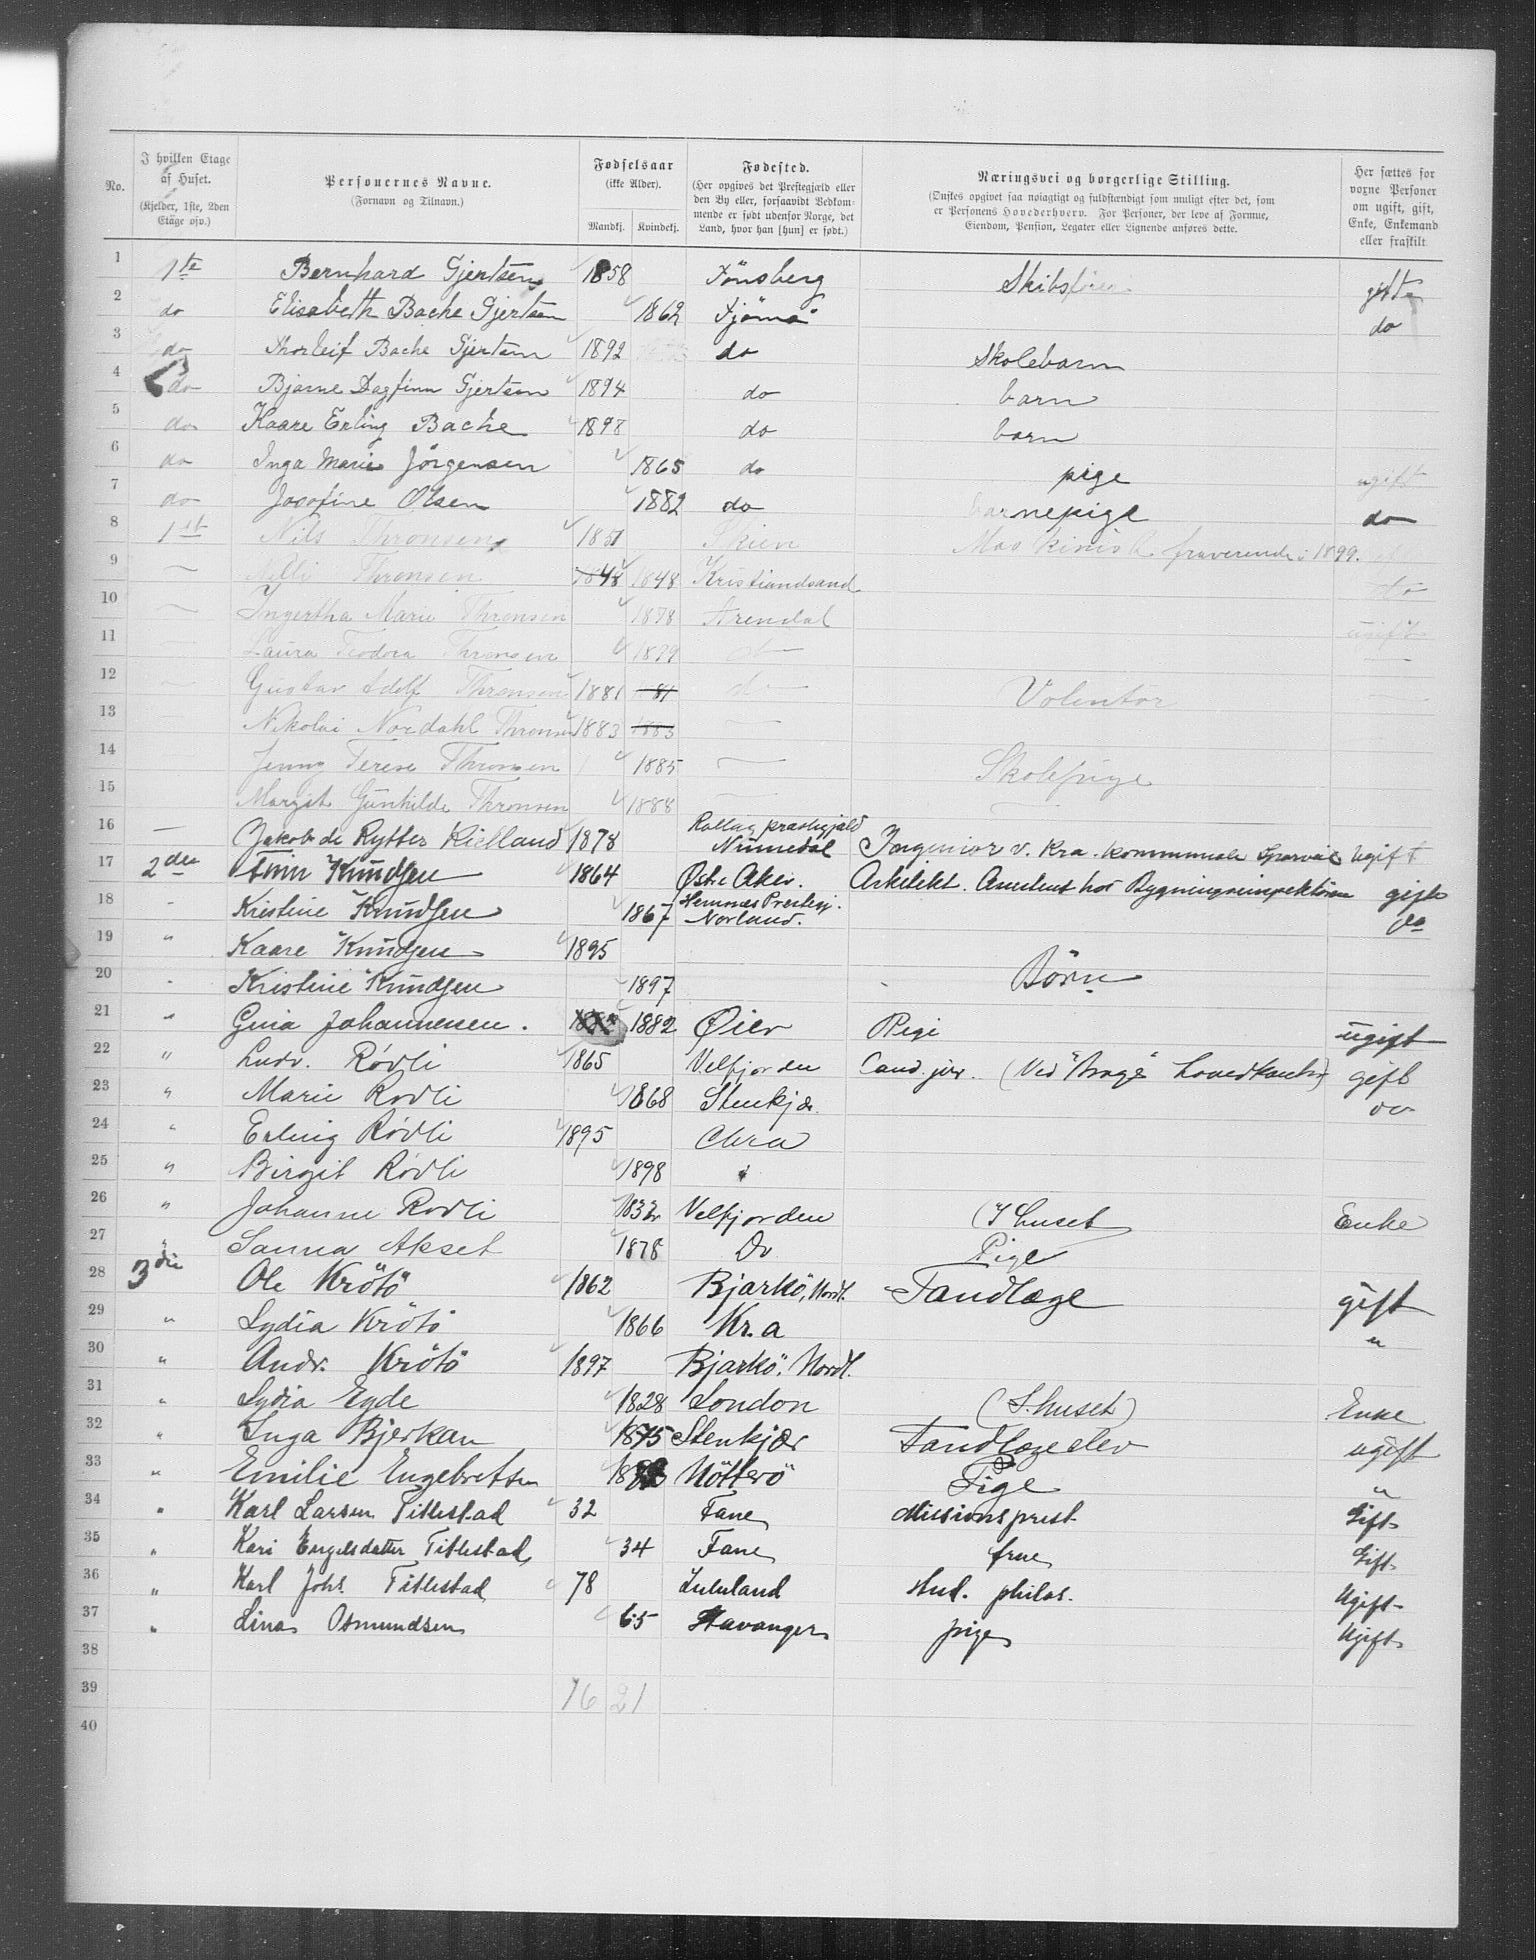 No. | I hvilken Etage af Huset. (Kjelder, 1ste, 2den Etage osv.) | Personernes Navne. (Fornavn og Tilnavn.) | Fødselsaar (ikke Alder). Mandkj. | Kvindekj. | Fødested. (Her opgives det Prestegjæld eller den By eller, forsaavidt Vedkommende er født udenfor Norge, det Land, hvor han [hun] er født.) | Næringsvei og borgerlige Stilling. (Ønskes opgivet saa nøiagtigt og fuldstændigt som muligt efter det, som er Personens Hovederhverv. For Personer, der leve af Formue, Eiendom, Pension, Legater eller Lignende anføres dette. | Her sættes for voxne Personer om ugift, gift, Enke, Enkemand eller fraskilt
1 1te Bernhard Gjertsen 1858 Tönsberg Skibsfører gift
2 do Elisabeth Bache Gjertsen 1862 Tjömö do
3 do Thorleif Bache Gjertsen 1892 do Skolebarn
4 do Bjarne Dagfinn Gjertsen 1894 do barn
5 do Kaare Erling Bache 1898 do barn
6 do Inga Marie Jörgensen 1865 do pige ugift
7 do Josefine Olsen 1882 do barnepige do
8 1st Nils Thronsen 1851 Skien Maskinist fraverende i 1899.
9 Thronsen 1848 1848 Kristiandsand do
10 Ingertha Marie Thronsen 1878 Arendal ugift
11 Laura Teodora Thronsen 1879 do
12 Gustav Adolf Thronsen 1881 81 do Volentør
13 Nikolai Nordahl Thronsen 1883 1883
14 Jenny Terese Thronsen 1885 Skolepige
15 Margit Gunhilde Thronsen 1888
16 Jakob de Rytter Kielland 1878 Rollag præstegjæld Numedal Ingeniør v. Kra. kommunale Sporvei Ugift
17 2den Finn Knudsen 1864 Østre Aker. Arkitekt. Assistent hos Bygningsinspektøren gift
18 " Kristine Knudsen 1867 Hemnæs Prestegj. Norland. do
19 " Kaare Knudsen 1895
20 " Kristine Knudsen 1897 Börn
21 " Gina Johannesen. 1882 Øier Pige ugift
22 " Ludv. Rödli 1865 Velfjorden Cand. jur. (Ved "Brage" hovedkontor) gift
23 " Marie Rödli 1868 Stenkjær do
24 " Erling Rödli 1895 Chra
25 " Birgit Rödli 1898 "
26 " Johanne Rödli 1832 Velfjorden (I huset Enke
27 " Sanna Akset 1878 Do Pige
28 3die Ole Krötö 1862 Bjarkö, Nordl. Tandlæge gift
29 " Lydia Krötö 1866 Kr.a "
30 " Andr. Krötö 1897 Bjarkö, Nordl.
31 " Lydia Egde 1828 London (I huset) Enke
32 " Inga Bjerkan 1875 Stenkjær Tandlægeelev ugift
33 " Emilie Engebretsen Nötterö Pige "
34 " Karl Larsen Titlestad 32 Fane Missionsprest Gift
35 " Kari Engelsdatter Titlestad 34 Fane frue Gift
36 " Karl Johs. Titlestad 78 Zululand stud. philos. Ugift
37 " Lina Osmundsen 65 Stavanger pige Ugift
38
39 16 21
40